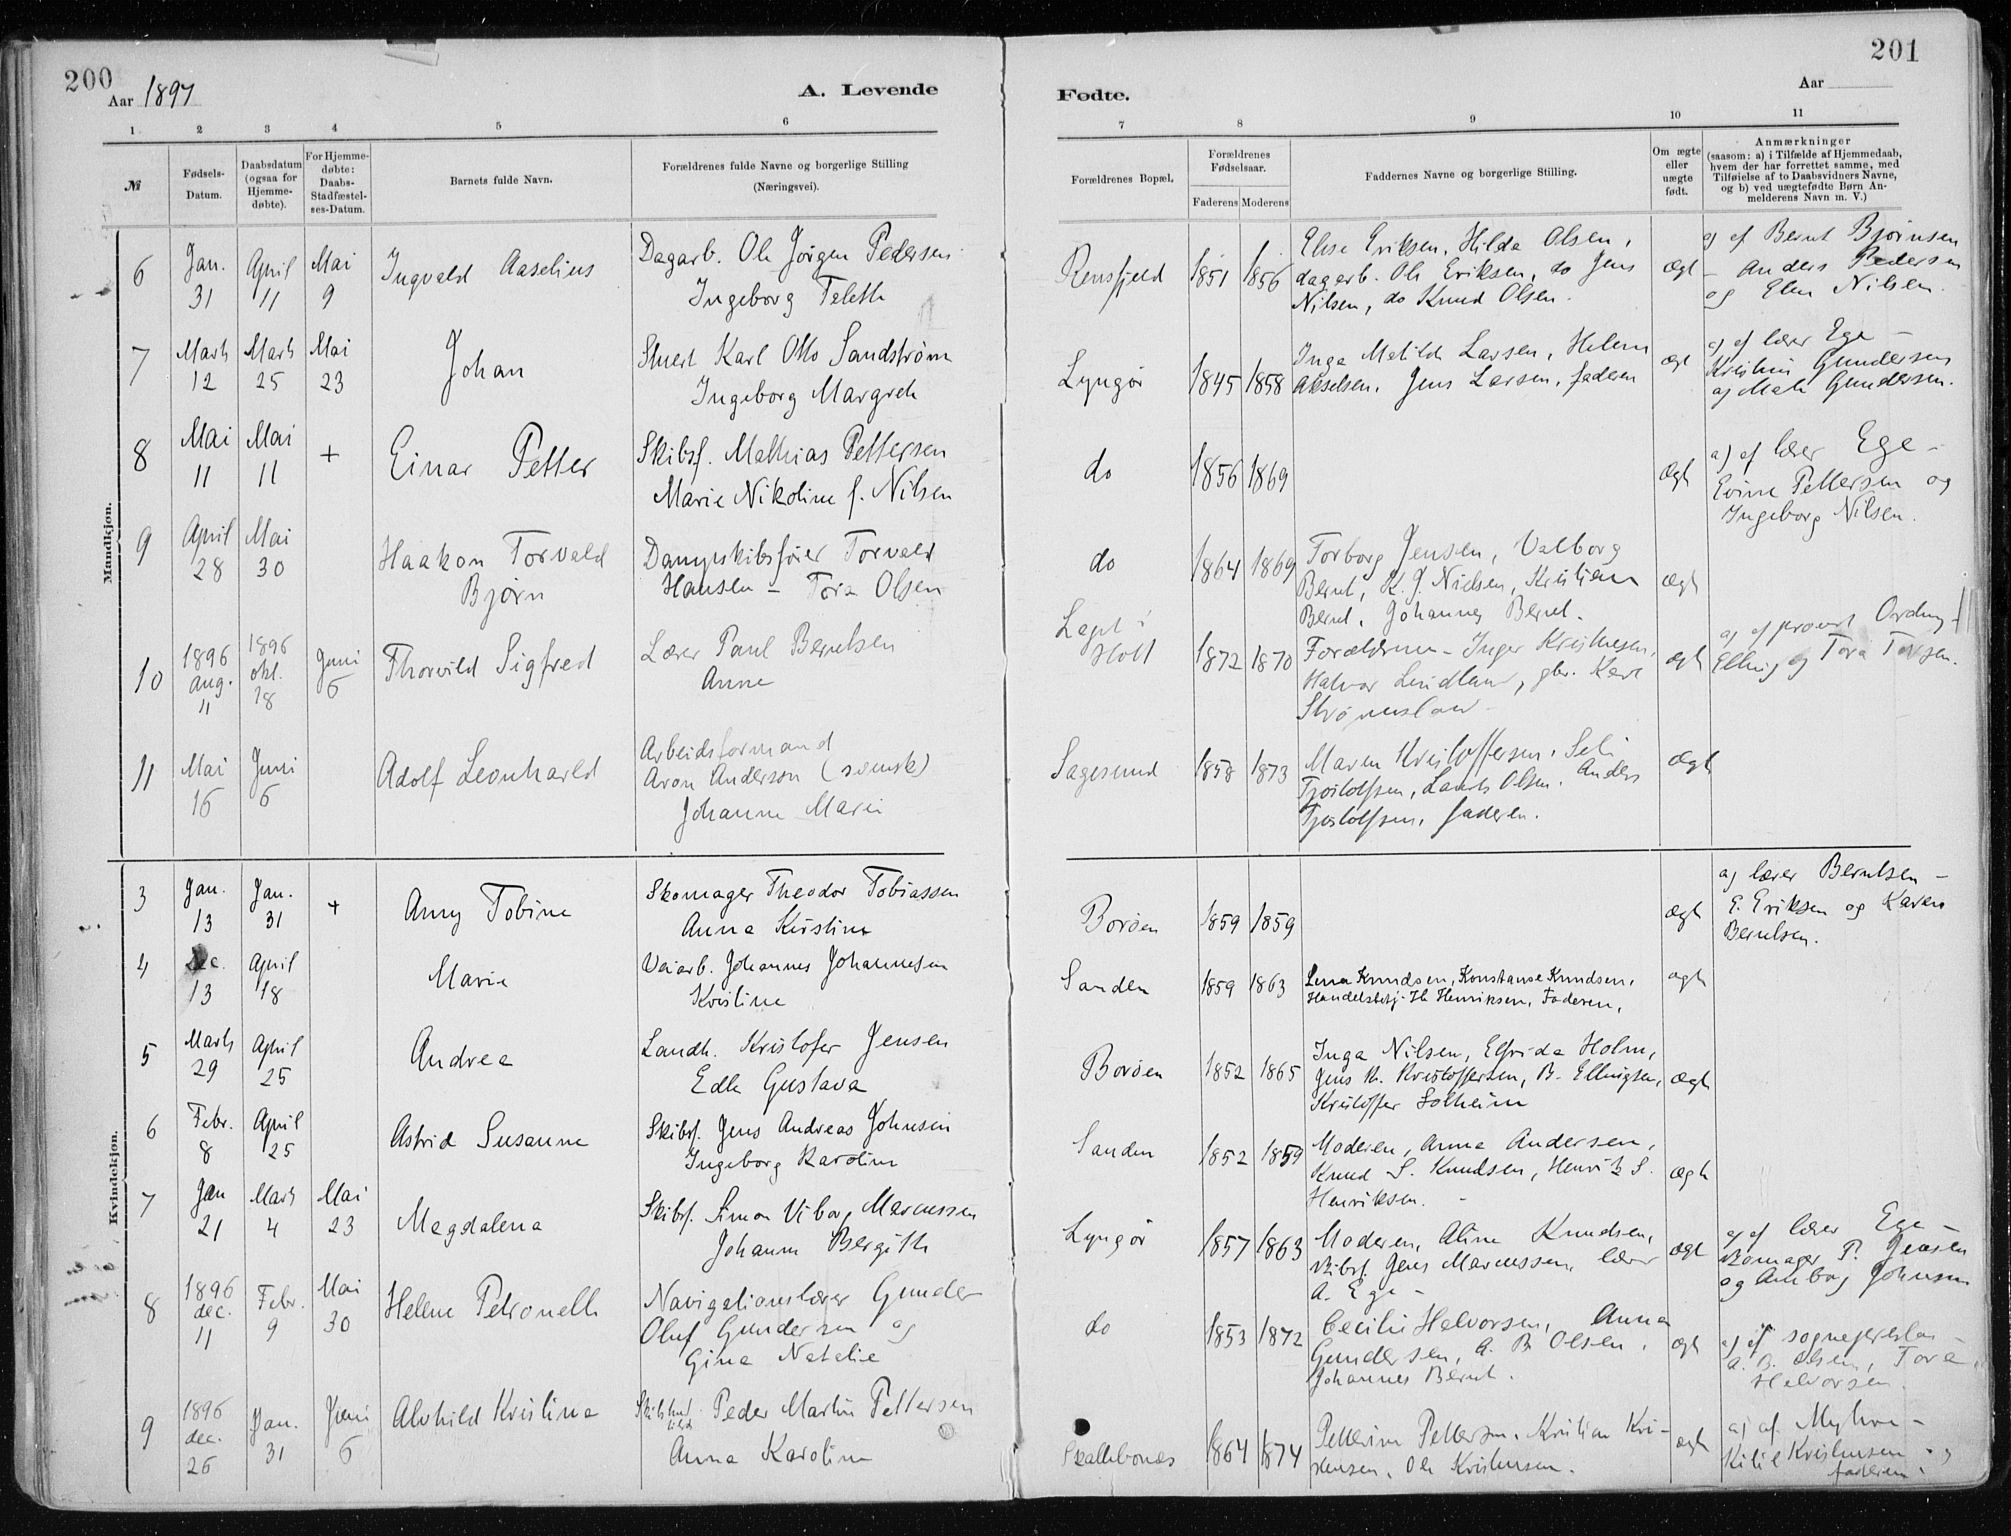 200
Aar 1897
A. Levende
1 2 3 4 5 6
№
Fødsels-Datum.
Daabsdatum (ogsaa for Hjemme-døbte).
For Hjemme-døbte: Daabs-Stadfæstel-ses-Datum.
Barnets fulde Navn.
Forældrenes fulde Navne og borgerlige Stilling
(Næringsvei).
201
Aar
Fødte.
7 8 9 10 11
Forældrenes Bopæl.
Forældrenes Fødselsaar.
Faderens Moderens
Faddernes Navne og borgerlige Stilling.
Om ægte eller uægte født.
Anmærkninger
(saasom: a) i Tilfælde af Hjemmedaab,
hvem der har forrettet samme, med
Tilføielse af to Daabsvidners Navne,
og b) ved uægtefødte Børn An-
melderens Navn m. V.)
Mandkjøn.
6 Jan. 31 April 11 Mai 9 Ingvald Aaselius
Dagarb. Ole Jørgen Pedersen
Ingeborg Teleth
Rensfjeld 1851 1856
Elise Eriksen, Hilda Olsen,
dagarb. Ole Eriksen, do Jens
Nilsen, do Knud Olsen.
ægt
a) af Bernt Bjørnsen
- Anders Pedersen
og Elen Nilsen.
7 Marts 12 Marts 25 Mai 23 Johan
Karl Otto Sandstrøm
Ingeborg Margrete
Lyngør 1845 1858
Inga Matilde Larsen, Helene
Akselsen, Jens Larsen, faderen
ægt
a) af lærer Ege -
Kristine Gundersen
og Gundersen.
8 Mai 11 Mai 11 + Einar Petter
Skibsf. Mathias Pettersen
Marie Nikoline f. Nilsen
do 1856 1869
ægt
a) af lærer Ege -
Pettersen og
Ingeborg Nilsen.
9 April 28 Mai 30 Haakon Torvald
Bjørn
Dampskibsfører Torvald
Hansen - Tora Olsen
do 1864 1869
Torborg Jensen, Valborg
Bernt, K. J. Nielsen, Kristian
Bernt, Johannes Bernt.
ægt
10 1896 aug. 11 1896 okt. 18 Juni 6 Thorvild Sigfred
Lærer Paul Berntsen
Anne
Holt 1872 1870
Forældrene - Inger Kristensen,
Halvor Lindland, gbr. Karl
ægt
a) af provst
Elling og Tora
11 Mai 16 Juni 6 Adolf Leonhard
Arbeidsformand
Aron Anderson (svensk)
Johanne Marie
Sagesund 1858 1873
Maren Kristoffersen,
Tjøstolfsen, Olsen, Anders
Tjøstolfsen, faderen.
ægt
Kvindekjøn.
3 Jan. 13 Jan. 31 + Anny Tobine
Skomager Theodor Tobiassen
Anna Kristine
Borøen 1859 1859
ægt
a) lærer Berntsen -
E. Eriksen og Karen
Berntsen.
4 Dec. 13 April 18 Marie
Veiarb. Johannes Johannesen
Kristine
Sanden 1859 1863
Lena Knudsen, Konstanse Knudsen,
Henriksen, Faderen,
ægt
5 Marts 29 April 25 Andrea
Landh. Kristofer Jensen
Edle Gustava
Borøen 1852 1865
Inga Nilsen, Elfrida Holm,
Jens Kr. Kristoffersen, B. Ellingsen,
Kristoffer Solheim
ægt
6 Febr. 8 April 25 Astrid Susanne
Skibsf. Jens Andreas Johnsen
Ingeborg Karoline
Sanden 1852 1859
Moderen, Anna Andersen,
Knud S. Knudsen, Henrik S.
Henriksen.
ægt
7 Jan 21 Marts 4 Mai 23 Magdalena
Skibsf. Simon Viborg Marcussen
Johanne Bergithe
Lyngør 1857 1863
Moderen, Aline Knudsen,
Skibsf. Jens Marcussen, lærer
A. Ege -
ægt
a) af lærer Ege -
Skomager P. Jensen
og Johnsen
8 1896 dec. 11 Febr. 9 Mai 30 Helene Petronelle
Navigationslærer Gunder
Oluf Gundersen og
Gina Natalie
do 1853 1872
Cecilie Halvorsen, Anna
Gundersen, A. B. Olsen,
Johannes Bernt.
ægt
a) af sogneprestas -
A. B. Olsen, Tora
Halvorsen.
9 1896 dec. 26 Jan. 31 Juni 6 Alvhild Kristina
Peder Martin Pettersen
Anna Karoline
Skallebonæs 1864 1874
Petterine Pettersen, Kristian Kri-
stensen, Ole Kristensen.
ægt
a) af Myhre -
Kristensen og
faderen.